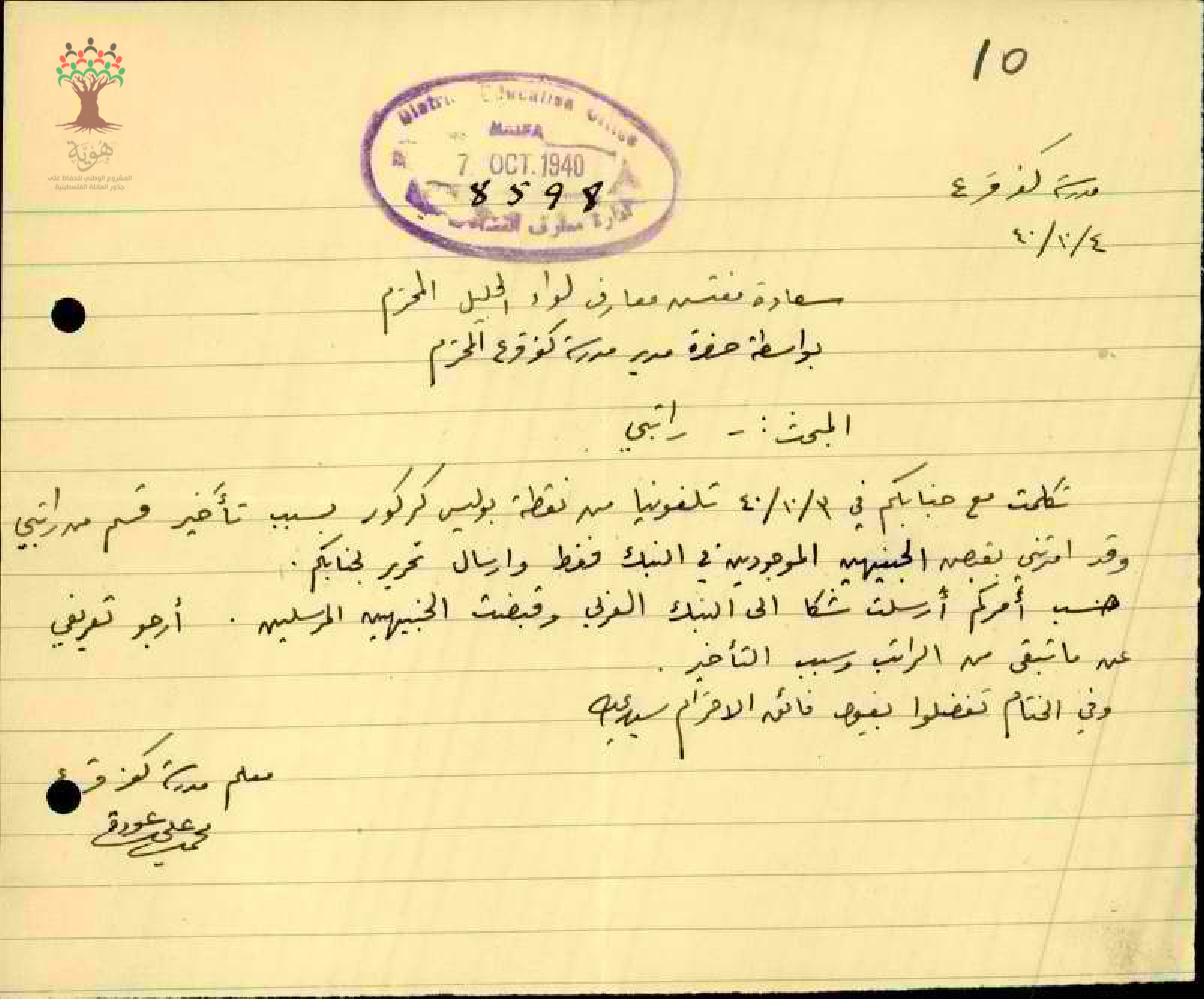 10
هوية
المشروع الوطني للحفاظ على
جذور العائلة الفلسطينية
District Education Office
HAIFA
7 OCT. 1940
8598
ادارة معارف
مدرسة كفر قرع
٤٠/١٠/٤
سعادة مفتش معارف لواء الجليل المحترم
بواسطة حضرة مدير مدرسة كفر قرع المحترم
المبحث :- راتبي
تكلمت مع جنابكم في ٤٠/١٠/٣ تلفونيا من نقطة بوليس كركور بسبب تأخير قسم من راتبي
وقد امرتني بقبض الجنيهين الموجودين في البنك فقط وارسال تحرير لجنابكم .
حسب أمركم أرسلت شكا الى البنك العربي وقبضت الجنيهين المرسلين . أرجو تعريفي
عن ما تبقى من الراتب وسبب التأخير .
وفي الختام تفضلوا بقبول فائق الاحترام سيدي
معلم مدرسة كفر قرع
محمد علي عودة